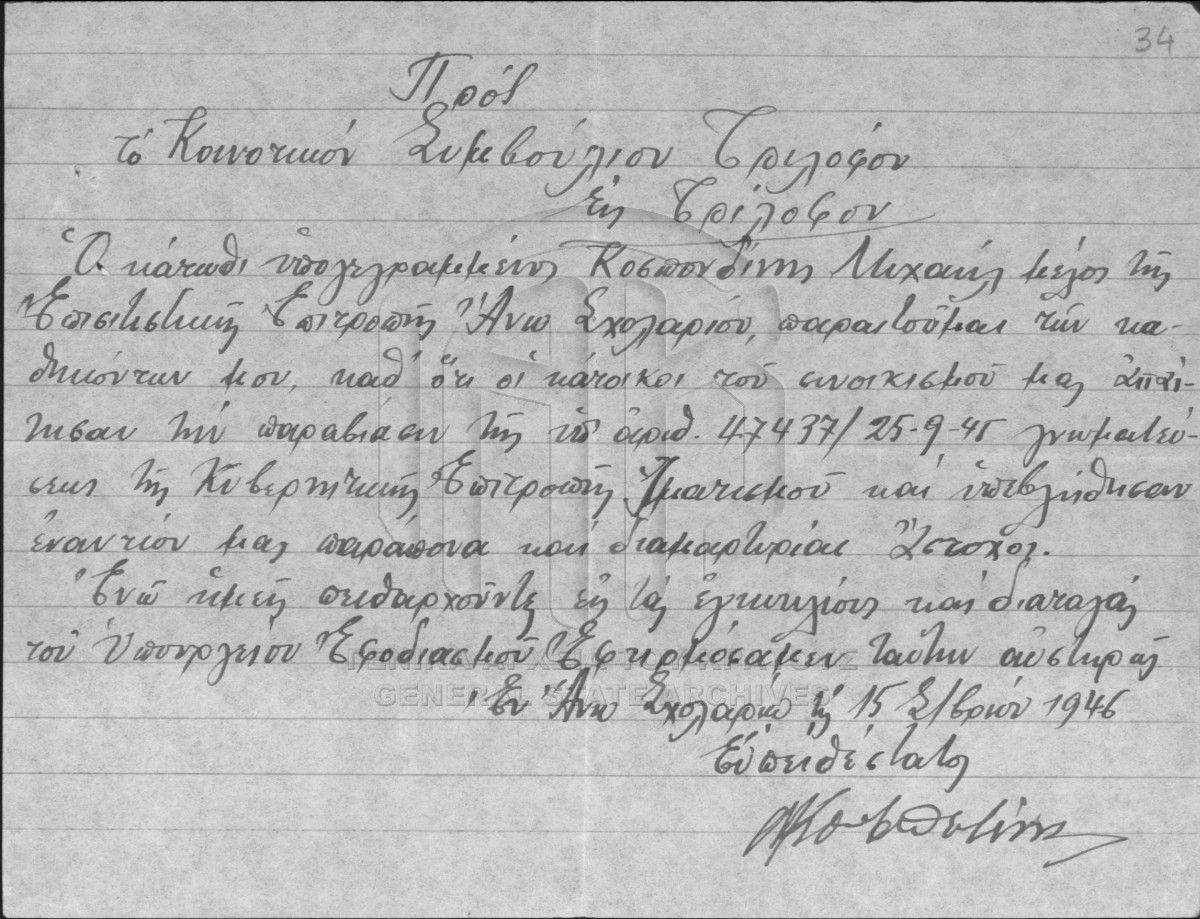 34
Πρός
τό Κοινοτικόν Συμβούλιον Τριλόφου
Εἰς Τρίλοφον
Ὁ κάτωθι ὑπογεγραμμένος Μιχαήλ μέλος τῆς
Ἐπισιτιστικῆς Ἐπιτροπῆς Ἄνω Σχολαρίου, παραιτοῦμαι τῶν κα-
θηκόντων μου, καθ' ὅτι οἱ κάτοικοι τοῦ συνοικισμοῦ μας ἀπαί-
τησαν τήν παραβίασιν τῆς ὑπ' ἀριθ. 47437/25-9-45 γνωματεύ-
σεως τῆς Κυβερνητικῆς Ἐπιτροπῆς Ἱματισμοῦ καί ὑπεβλήθησαν
ἐναντίον μας παράπονα καί διαμαρτυρίαι
Ἐνῶ ἡμεῖς πειθαρχοῦντες εἰς τάς ἐγκυκλίους καί διαταγάς
τοῦ Ὑπουργείου Ἐφοδιασμοῦ Ἐφηρμόσαμεν ταύτην αὐστηρῶς
Ἐν Ἄνω Σχολαρίῳ τῇ 15 Σ/βρίου 1946
Εὐπειθέστατος
GENERAL STATE ARCHIVES